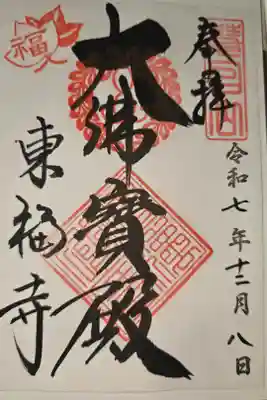 奉拝
令和七年十二月八日
大佛寳殿
東福寺
福